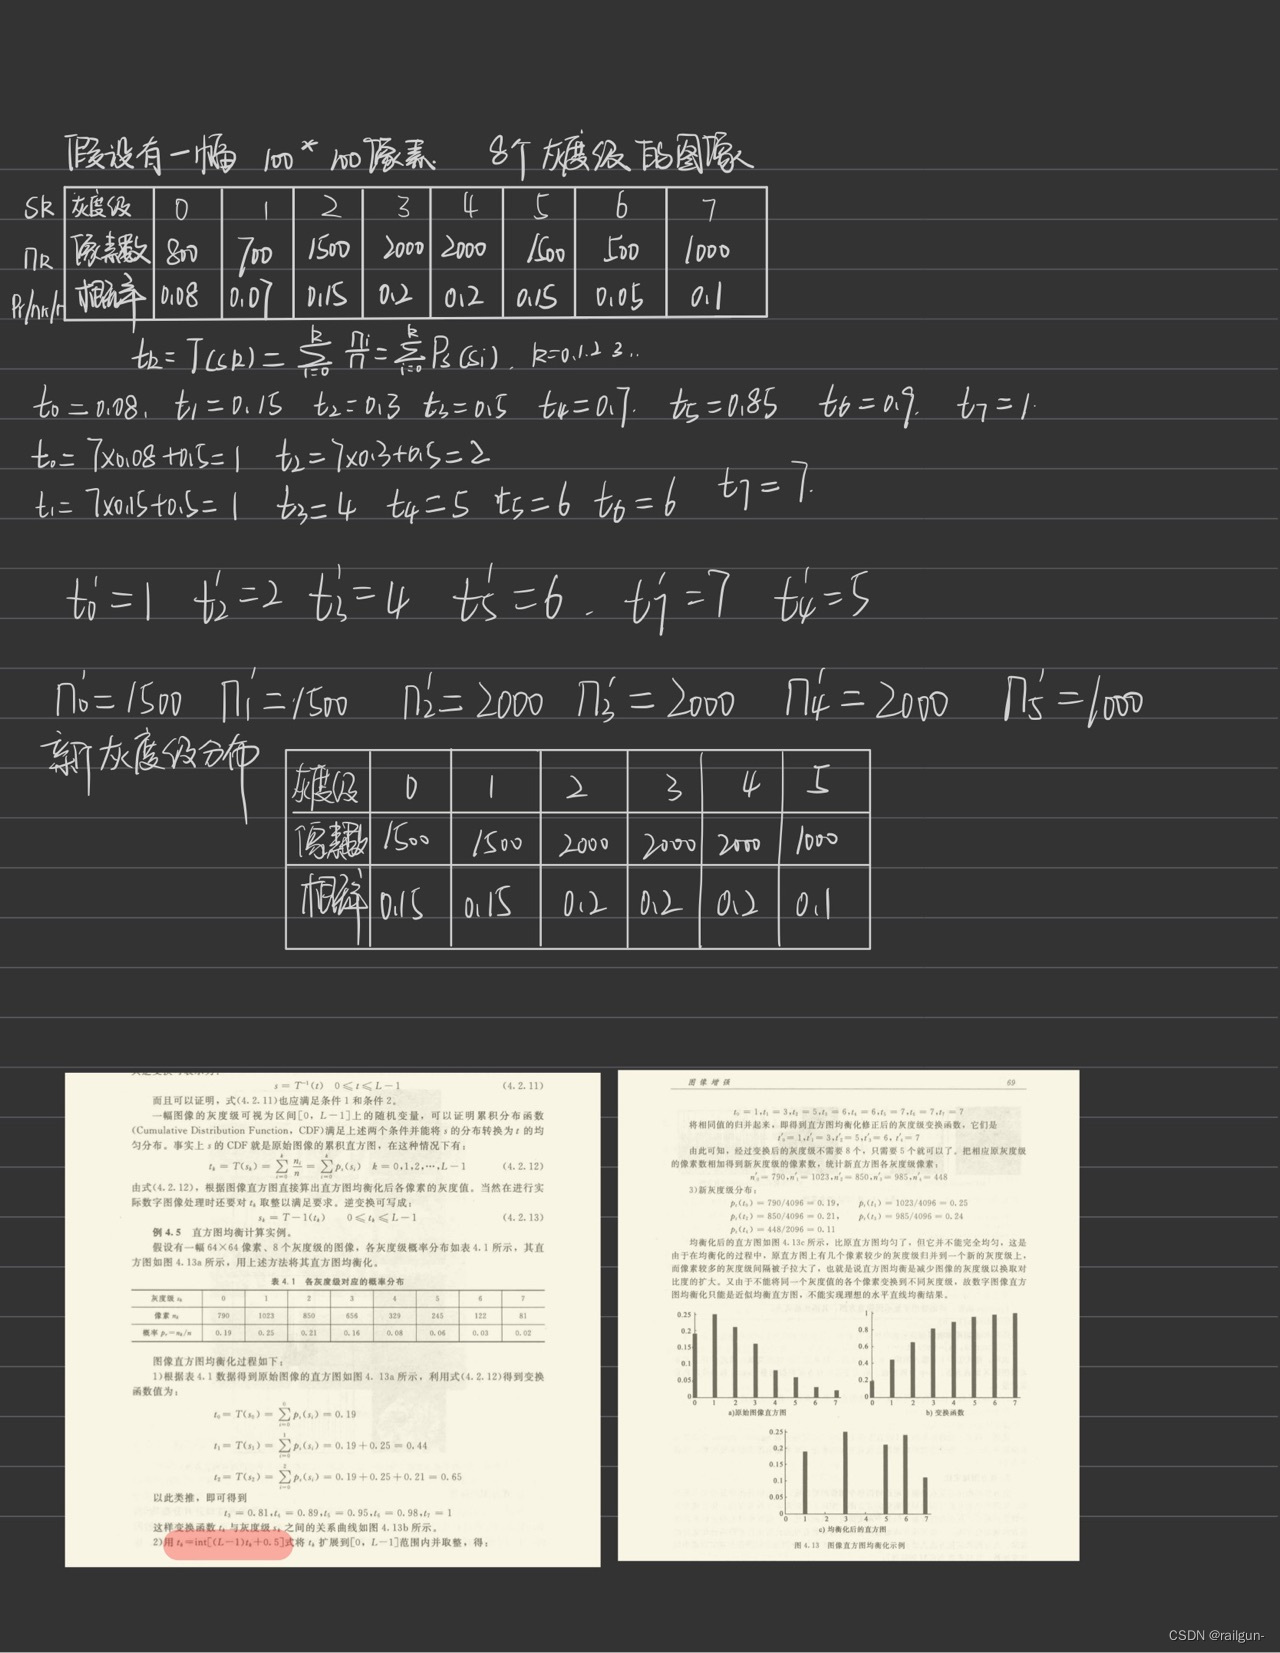 假设有一幅 100*100像素 8个灰度级的图像
SK 灰度级 0 1 2 3 4 5 6 7
nk 像素数 800 700 1500 2000 2000 1500 500 1000
Pr/nk/n 概率 0.08 0.07 0.15 0.2 0.2 0.15 0.05 0.1
tk=T(sk)=∑ ni/n=∑ Ps(si). k=0.1.2 3..
t0=0.08. t1=0.15 t2=0.3 t3=0.5 t4=0.7. t5=0.85 t6=0.9. t7=1.
t0=7x0.08+0.5=1 t2=7x0.3+0.5=2
t1=7x0.15+0.5=1 t3=4 t4=5 t5=6 t6=6 t7=7.
t0'=1 t2'=2 t3'=4 t5'=6. t7'=7 t4'=5
n0'=1500 n1'=1500 n2'=2000 n3'=2000 n4'=2000 n5'=1000
新灰度级分布
灰度级 0 1 2 3 4 5
像素数 1500 1500 2000 2000 2000 1000
概率 0.15 0.15 0.2 0.2 0.2 0.1
s = T⁻¹(t) 0≤t≤L−1 (4.2.11)
而且可以证明，式(4.2.11)也应满足条件1和条件2。
一幅图像的灰度级可视为区间[0，L−1]上的随机变量，可以证明累积分布函数
(Cumulative Distribution Function，CDF)满足上述两个条件并能将s的分布转换为t的均
匀分布。事实上s的CDF就是原始图像的累积直方图，在这种情况下有：
tk = T(sk) = ∑ ni/n = ∑ ps(si) k = 0,1,2,⋯,L−1 (4.2.12)
由式(4.2.12)，根据图像直方图直接算出直方图均衡化后各像素的灰度值。当然在进行实
际数字图像处理时还要对tk取整以满足要求。逆变换可写成：
sk = T−1(tk) 0≤tk≤L−1 (4.2.13)
例4.5 直方图均衡计算实例。
假设有一幅64×64像素、8个灰度级的图像，各灰度级概率分布如表4.1所示，其直
方图如图4.13a所示，用上述方法将其直方图均衡化。
表4.1 各灰度级对应的概率分布
灰度级 sk 0 1 2 3 4 5 6 7
像素 nk 790 1023 850 656 329 245 122 81
概率 pr=nk/n 0.19 0.25 0.21 0.16 0.08 0.06 0.03 0.02
图像直方图均衡化过程如下：
1)根据表4.1数据得到原始图像的直方图如图4.13a所示，利用式(4.2.12)得到变换
函数值为：
t0 = T(s0) = ∑ ps(si) = 0.19
t1 = T(s1) = ∑ ps(si) = 0.19 + 0.25 = 0.44
t2 = T(s2) = ∑ ps(si) = 0.19 + 0.25 + 0.21 = 0.65
以此类推，即可得到
t3 = 0.81,t4 = 0.89,t5 = 0.95,t6 = 0.98,t7 = 1
这样变换函数tk与灰度级sk之间的关系曲线如图4.13b所示。
2)用tk=int[(L−1)tk+0.5]式将tk扩展到[0，L−1]范围内并取整，得：
图像增强 69
t0 = 1,t1 = 3,t2 = 5,t3 = 6,t4 = 6,t5 = 7,t6 = 7,t7 = 7
将相同值的归并起来，即得到直方图均衡化修正后的灰度级变换函数，它们是
t'0 = 1,t'1 = 3,t'2 = 5,t'3 = 6,t'4 = 7
由此可知，经过变换后的灰度级不需要8个，只需要5个就可以了。把相应原灰度级
的像素数相加得到新灰度级的像素数，统计新直方图各灰度级像素：
n'0 = 790,n'1 = 1023,n'2 = 850,n'3 = 985,n'4 = 448
3)新灰度级分布：
pt(t0) = 790/4096 = 0.19, pt(t1) = 1023/4096 = 0.25
pt(t2) = 850/4096 = 0.21, pt(t3) = 985/4096 = 0.24
pt(t4) = 448/2096 = 0.11
均衡化后的直方图如图4.13c所示，比原直方图均匀了，但它并不能完全均匀，这是
由于在均衡化的过程中，原直方图上有几个像素较少的灰度级归并到一个新的灰度级上，
而像素较多的灰度级间隔被子拉大了，也就是说直方图均衡是减少图像的灰度级以换取对
比度的扩大。又由于不能将同一个灰度值的各个像素变换到不同灰度级，故数字图像直方
图均衡化只能是近似均衡直方图，不能实现理想的水平直线均衡结果。
0.25 0.2 0.15 0.1 0.05 0
0 1 2 3 4 5 6 7
a)原始图像直方图
1 0.8 0.6 0.4 0.2 0
0 1 2 3 4 5 6 7
b) 变换函数
0.25 0.2 0.15 0.1 0.05 0
0 1 2 3 4 5 6 7
c) 均衡化后的直方图
图 4.13 图像直方图均衡化示例
CSDN @railgun-